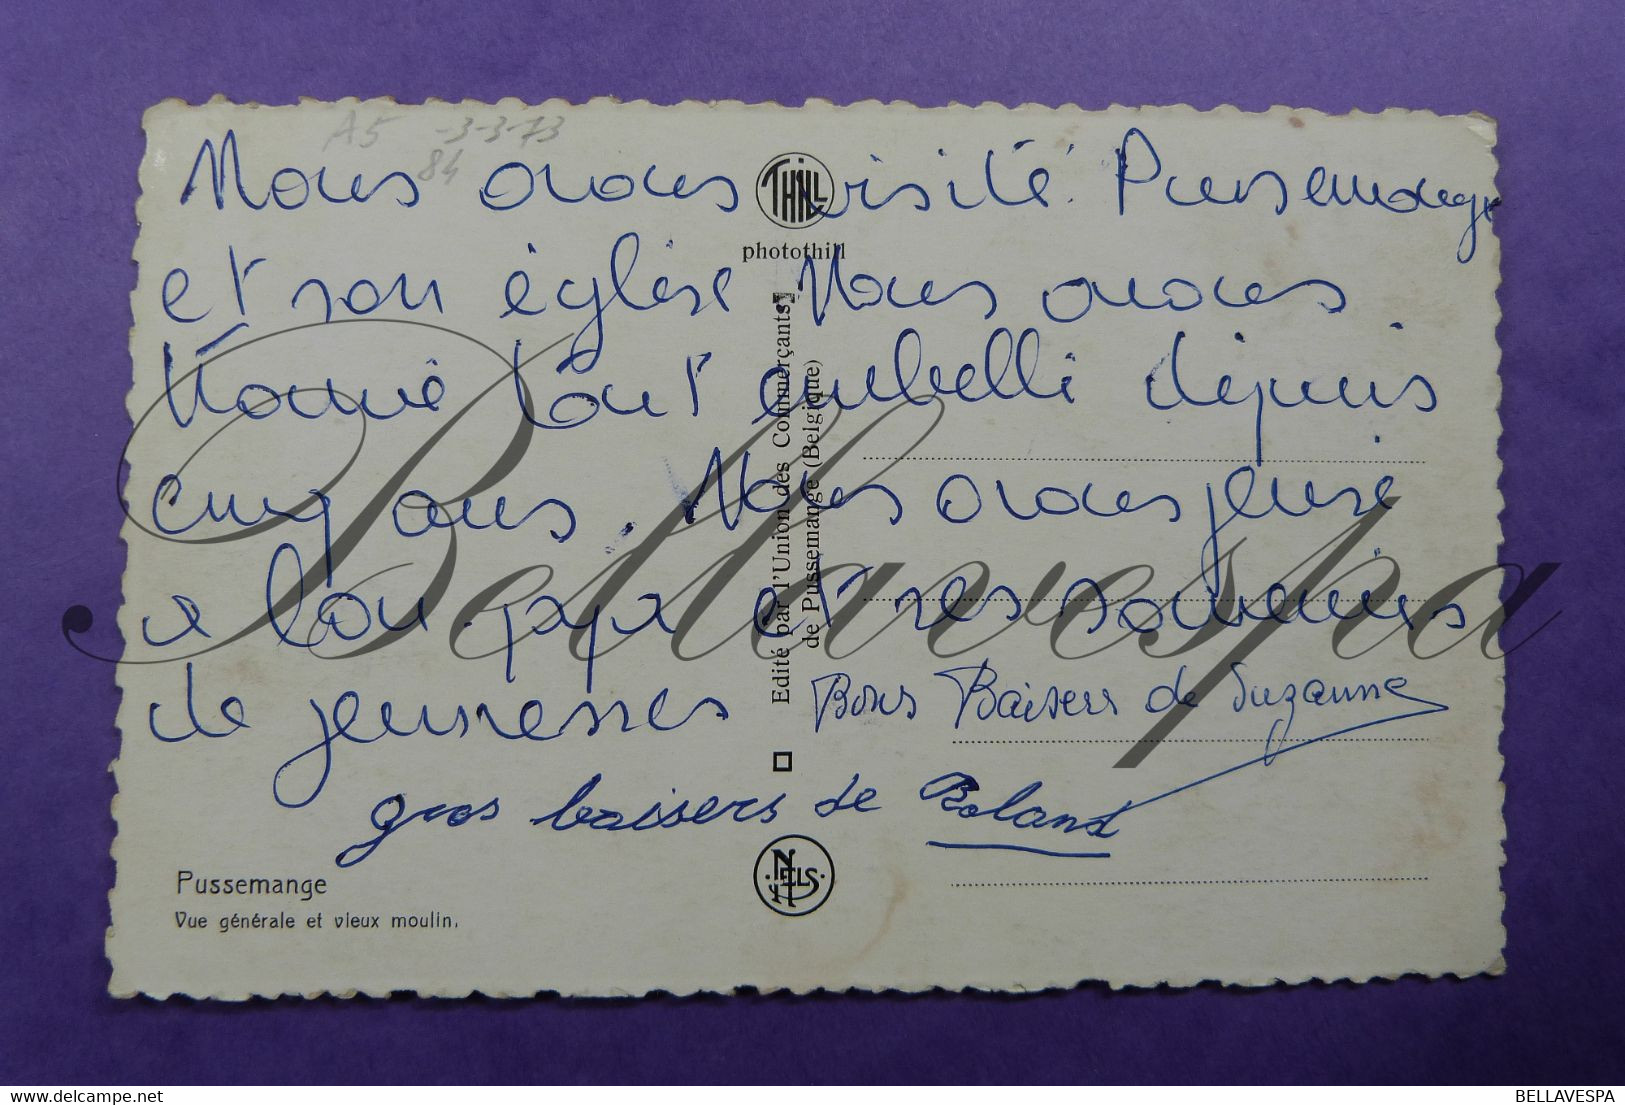 A5 -3-3-73
84
Nous avons visité Pussemange
et son église Nous avons
trouvé tout embelli depuis
cinq ans. Nous avons pensé
a bon papa et ses souvenirs
de jeunesses
Bons Baisers de Suzanne
gros baisers de Roland
THILL
photothill
Edité par l'Union des Commerçants
de Pussemange (Belgique)
NELS
Pussemange
Vue générale et vieux moulin.
Bellavespa
BELLAVESPA